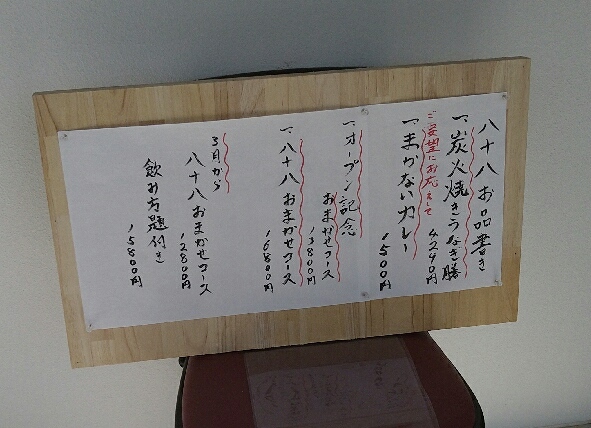 八十八お品書き
一、炭火焼きうなぎ膳
4290円
ご要望にお応えして
一、まかないカレー
1500円
一、オープン記念
おまかせコース
13800円
一、八十八おまかせコース
16800円
3月から
八十八おまかせコース
12800円
飲み方題付き
15800円